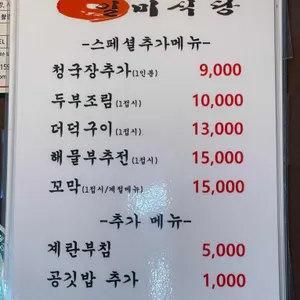 일미식당
-스페셜추가메뉴-
청국장추가(1인분) 9,000
두부조림(1접시) 10,000
더덕구이(1접시) 13,000
해물부추전(1접시) 15,000
꼬막(1접시/계절메뉴) 15,000
-추가 메뉴-
계란부침 5,000
공깃밥 추가 1,000